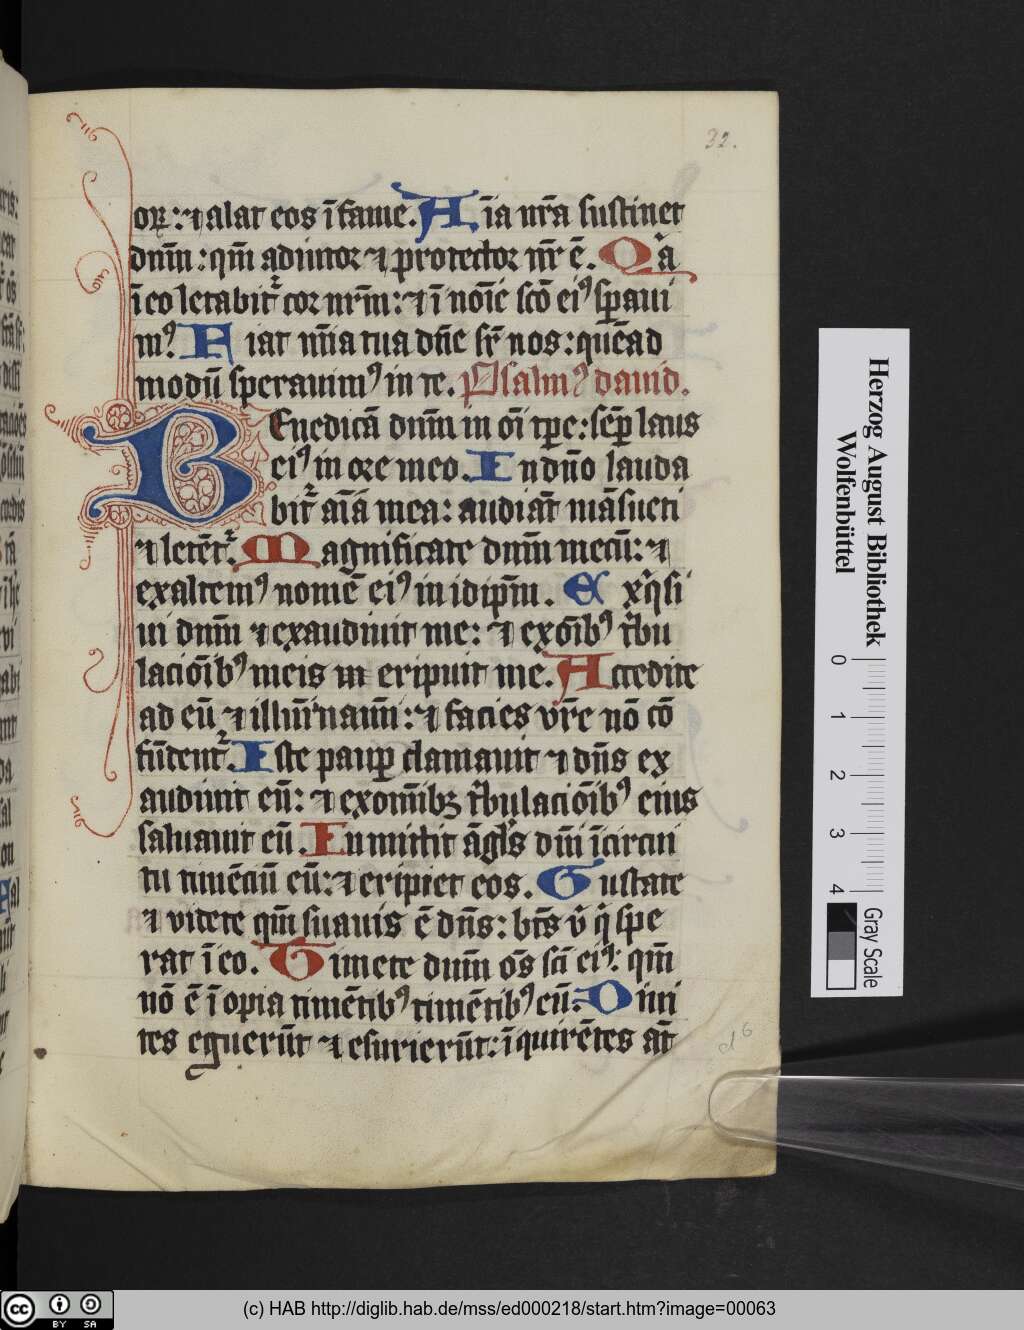 32.
oꝝ: ⁊ alat eos ī fame. A īa nr̄a sustinet
dnm̄: qm̄ adiutor ⁊ protector nr̄ ē. Qͥa
ī eo letabit᷑ cor nrm̄: ⁊ ī noīe scō eiꝰ sꝑaui
mꝰ. F iat mīa tua dn̄e sr̄ nos: quēad
modū sperauimꝰ in te. Psalmꝰ dauid.
BEnedicā dnm̄ in oī tꝑe: sēꝑ laus
eiꝰ in ore meo. In dn̄o lauda
bit᷑ aīa mea: audiāt māsueti
⁊ letēt᷑. Magnificate dnm̄ mecū: ⁊
exaltemꝰ nomē eiꝰ in idip̄m. Ex xq̄si
ui dnm̄ ⁊ exaudiuit me: ⁊ ex oīb᷒ tͥbu
lacioīb᷒ meis eripuit me. Accedite
ad eū ⁊ illumīnamī: ⁊ facies vr̄e nō cō
fūdent᷑. Iste pauꝑ clamauit ⁊ dn̄s ex
audiuit eū: ⁊ ex omībꝫ tͥbulacioīb᷒ eius
saluauit eū. Inmittit āgls̄ dn̄i īcircui
tu timēciū eū: ⁊ eripiet eos. Gustate
⁊ videte qm̄ suauis ē dn̄s: bt̄s v̄ qͥ spe
rat ī eo. Timete dnm̄ oēs scī eiꝰ: qm̄
nō ē īopia timētib᷒ timētib᷒ eū. Diui
tes eguerūt ⁊ esurierūt: īquirētes āt
d 6
Herzog August Bibliothek
Wolfenbüttel
0 1 2 3 4
Gray Scale
cc BY SA
(c) HAB http://diglib.hab.de/mss/ed000218/start.htm?image=00063